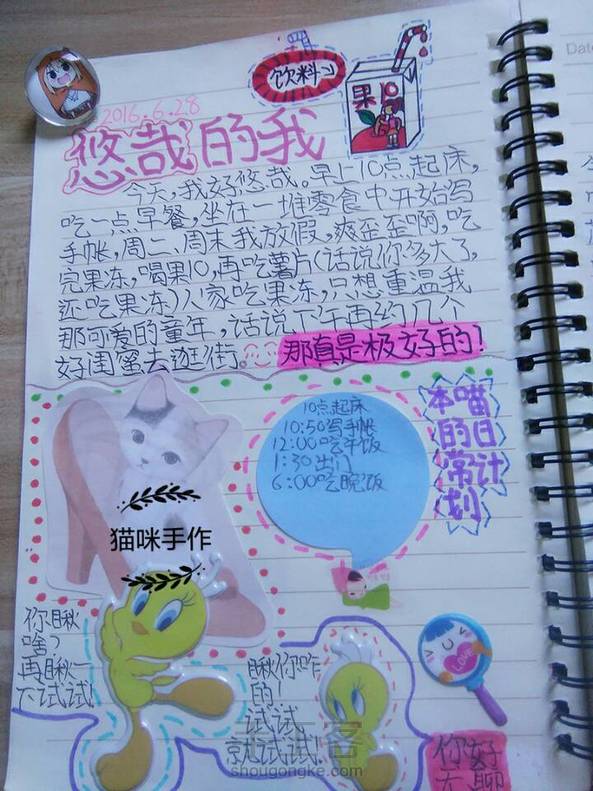 饮料~
果10
2016.6.28
悠哉的我
今天,我好悠哉。早上10点起床,
吃一点早餐,坐在一堆零食中开始写
手帐,周二、周末我放假,爽歪歪啊,吃
完果冻,喝果10,再吃薯片(话说你多大了,
还吃果冻)人家吃果冻,只想重温我
那可爱的童年,话说下午再约几个
好闺蜜去逛街。那真是极好的!
10点起床
10:50写手帐
12:00吃午饭
1:30出门
6:00吃晚饭
本喵
的日
常计
划
猫咪手作
你瞅
啥?
再瞅一
下试试!
瞅你咋
的!
试试
就试试!
LOVE
你好
无聊
手工客
shougongke.com
Date